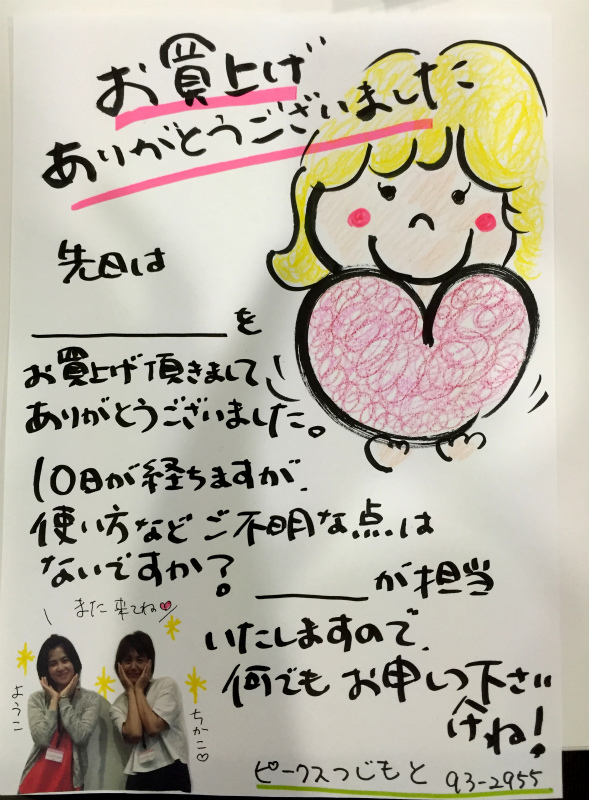 お買上げ
ありがとうございました
先日は
を
お買上げ頂きまして、
ありがとうございました。
10日が経ちますが、
使い方などご不明な点は
ないですか?
が担当
いたしますので、
何でもお申しつ下さい
けね!
また来てね
ようこ
ちかこ♡
ピークスつじもと 93-2955